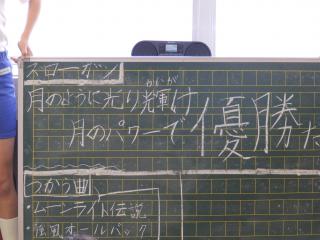 スローガン
かがや
月のように光り輝け
月のパワーで優勝だ
つかう曲
・ムーンライト伝説
・強風オールバック